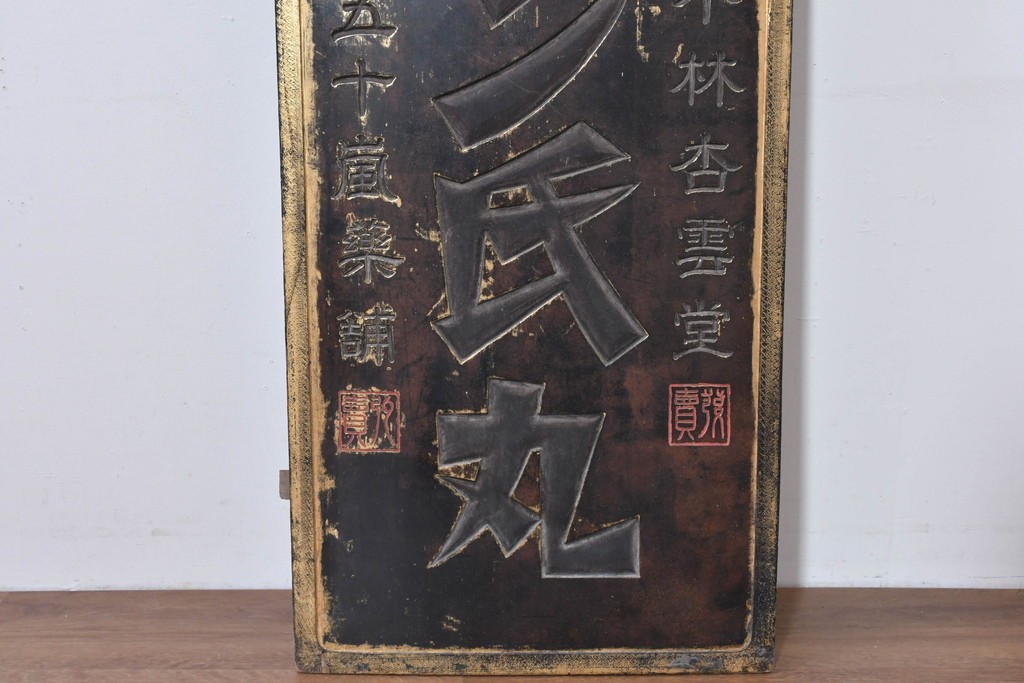 林杏雲堂
發賣
氏丸
五十嵐藥舖
發賣